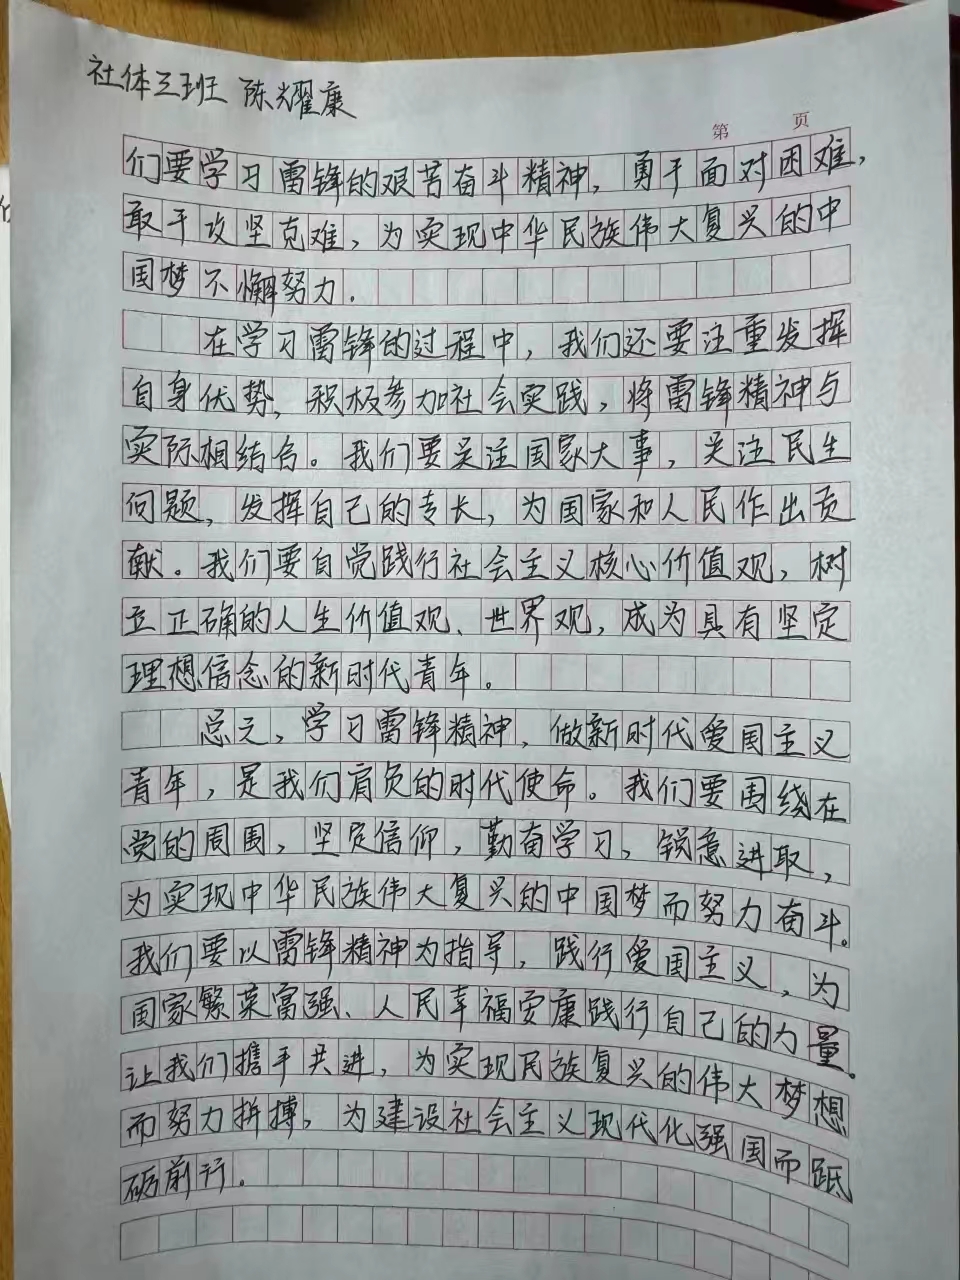 社体三班 陈耀康
第 页
们要学习雷锋的艰苦奋斗精神，勇于面对困难，
敢于攻坚克难，为实现中华民族伟大复兴的中
国梦不懈努力.
在学习雷锋的过程中，我们还要注重发挥
自身优势，积极参加社会实践，将雷锋精神与
实际相结合。我们要关注国家大事，关注民生
问题，发挥自己的专长，为国家和人民作出贡
献。我们要自觉践行社会主义核心价值观，树
立正确的人生价值观、世界观，成为具有坚定
理想信念的新时代青年。
总之，学习雷锋精神，做新时代爱国主义
青年，是我们肩负的时代使命。我们要围绕在
党的周围，坚定信仰，勤奋学习，锐意进取，
为实现中华民族伟大复兴的中国梦而努力奋斗。
我们要以雷锋精神为指导，践行爱国主义，为
国家繁荣富强、人民幸福安康践行自己的力量.
让我们携手共进，为实现民族复兴的伟大梦想
而努力拼搏，为建设社会主义现代化强国而砥
砺前行。